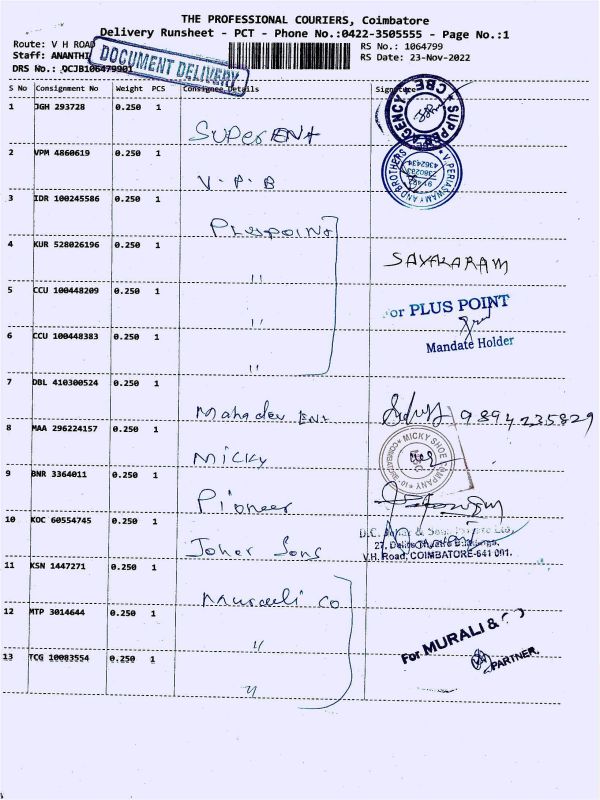 THE PROFESSIONAL COURIERS, Coimbatore
Delivery Runsheet - PCT - Phone No.:0422-3505555 - Page No.:1
Route: V H ROAD RS No.: 1064799
Staff: ANANTHI RS Date: 23-Nov-2022
DOCUMENT DELIVERY
DRS No.: QCJB106479901
S No Consignment No Weight PCS Consignee Details Signature
1 JGH 293728 0.250 1 Super Ent
SUPPER AGENCY CBE
2 VPM 4860619 0.250 1 V.P.B
V. PERIASWAMY AND BROTHERS
3 IDR 100245586 0.250 1 Pluspoint
4 KUR 528026196 0.250 1 "
SAYAKARAM
5 CCU 100448209 0.250 1 "
or PLUS POINT
6 CCU 100448383 0.250 1 "
Mandate Holder
7 DBL 410300524 0.250 1 Mahadev Ent 9894235829
8 MAA 296224157 0.250 1 Micky
MICKY SHOE COMPANY
9 BNR 3364011 0.250 1 Pioneer
10 KOC 60554745 0.250 1 Joher Sons
V.H. Road, COIMBATORE-641 001.
11 KSN 1447271 0.250 1 Muraali Co
12 MTP 3014644 0.250 1 "
For MURALI &
PARTNER.
13 TCG 10083554 0.250 1 "